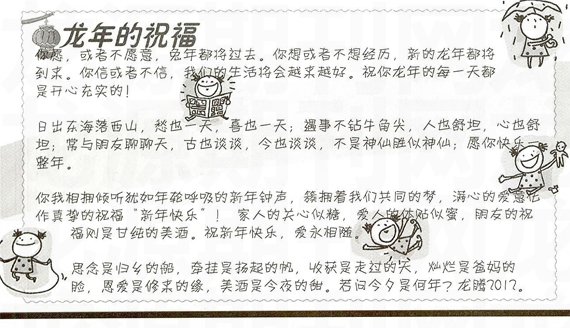 龙年的祝福
你愿，或者不愿意，兔年都将过去。你想或者不想经历，新的龙年都将
到来。你信或者不信，我们的生活将会越来越好。祝你龙年的每一天都
是开心充实的！
日出东海落西山，愁也一天，喜也一天；遇事不钻牛角尖，人也舒坦，心也舒
坦；常与朋友聊聊天，古也谈谈，今也谈谈，不是神仙胜似神仙；愿你快乐一
整年。
你我相拥倾听犹如年轮呼吸的新年钟声，簇拥着我们共同的梦，满心的爱意化
作真挚的祝福“新年快乐”！ 家人的关心似糖，爱人的体贴似蜜，朋友的祝
福则是甘纯的美酒。祝新年快乐，爱永相随。
思念是归乡的船，牵挂是扬起的帆，收获是走过的天，灿烂是爸妈的
脸，恩爱是修来的缘，美酒是今夜的甜。若问今夕是何年？龙腾2012。